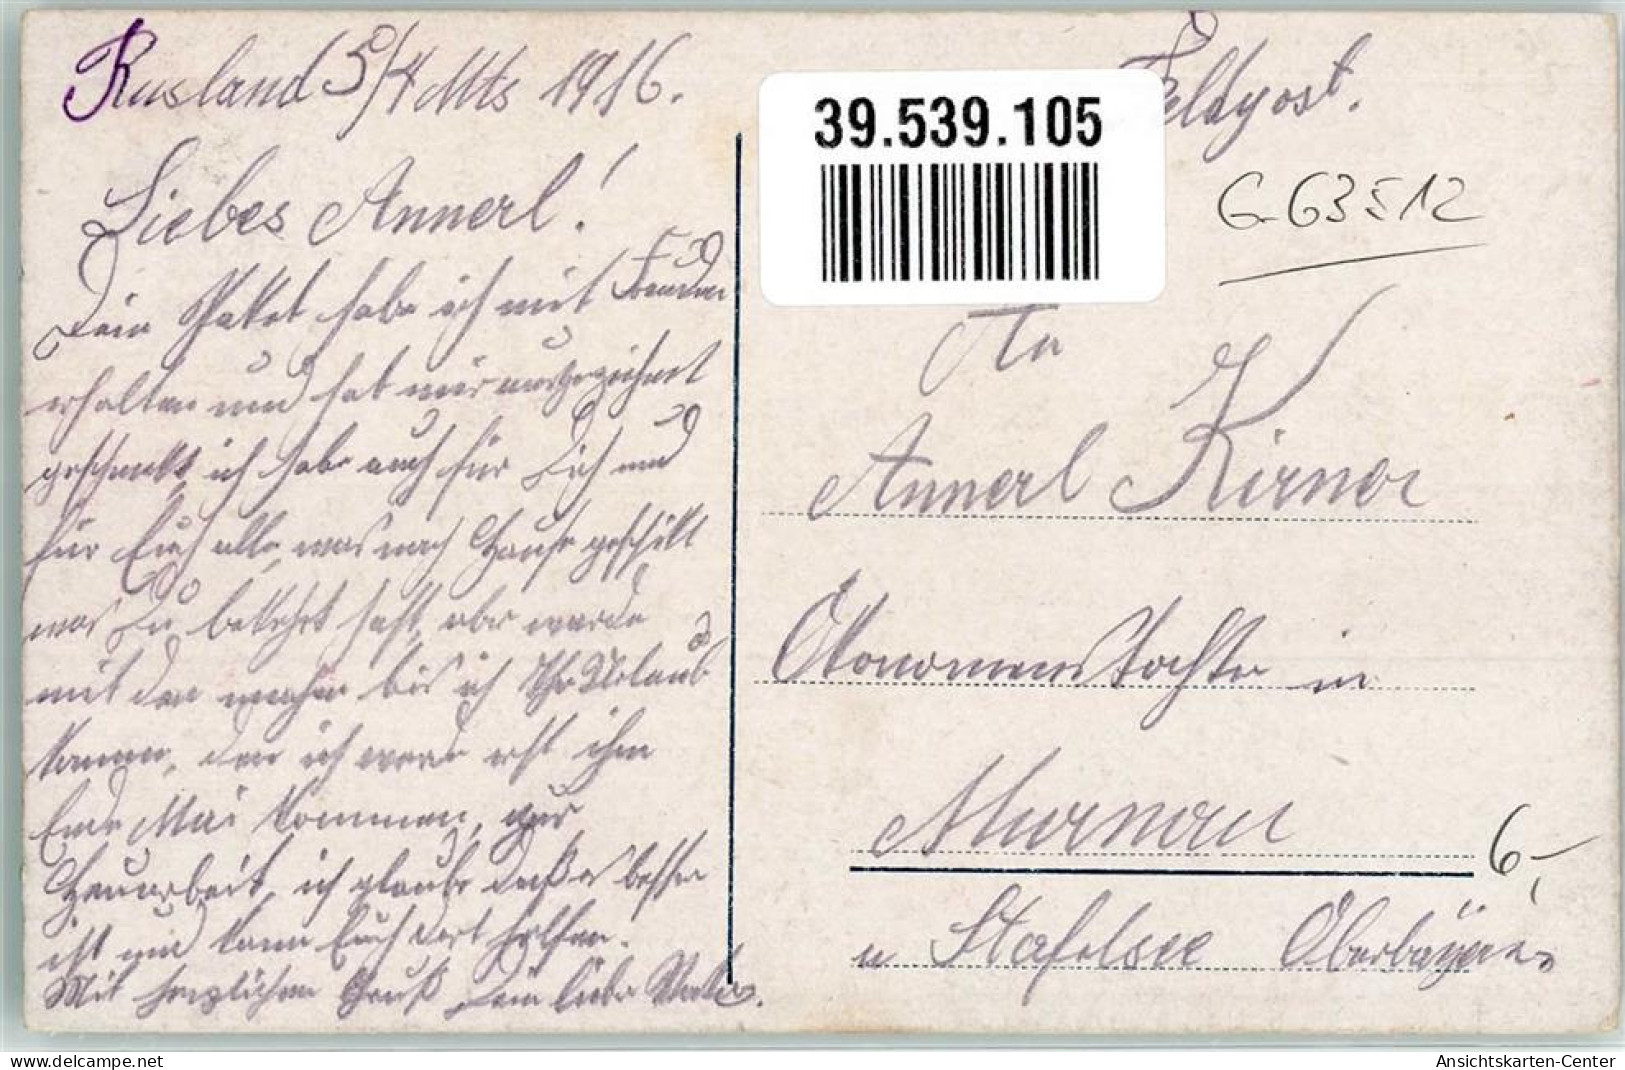 Rusland 5/4 Mts 1916.
Liebes Annerl!
Dein Paket habe ich mit Freuden
erhalten und hat mir ausgezeichnet
geschmekt, ich habe auch für Dich und
für Euch alle, was nach Hause geschikt
was Du bekehrt hast, aber werde
mit den machen bis ich Ihr Urlaub
komme, den ich werde erst ihm
Ende Mai kommen, zur
Heuarbeit, ich glaube daß es besser
ist und kann Euch dort helfen.
Mit herzlichem Gruß Dein lieber Vater.
Feldpost.
39.539.105
G-63512
An
Annerl Kirner
Ökonomenstochter in
Murnau
6,-
a Stafelsee Oberbayern
www.delcampe.net
Ansichtskarten-Center